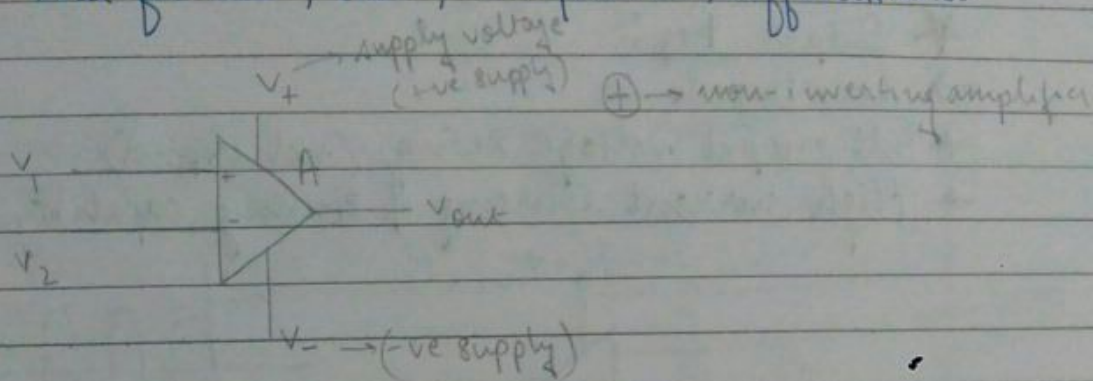 supply voltage
V+ (+ve supply) ⊕→ non-inverting amplifier
V1 + A
- Vout
V2
V- →(-ve supply)